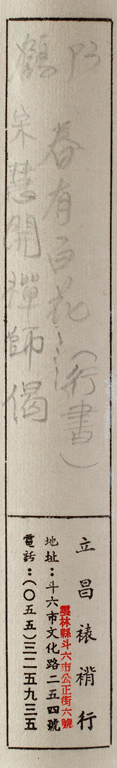 春有百花……（行書）
宋慧開禪師偈
立昌裱褙行
雲林縣斗六市公正街六號
地址：斗六市文化路二五四號
電話：（〇五五）三二五九三五